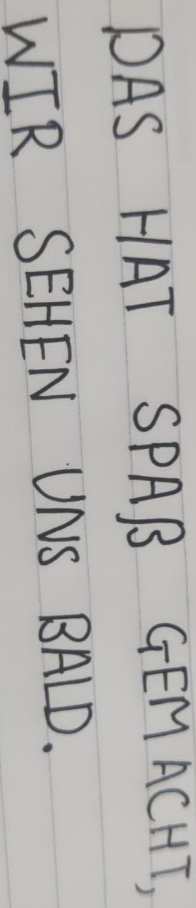 DAS HAT SPAß GEMACHT,
WIR SEHEN UNS BALD.